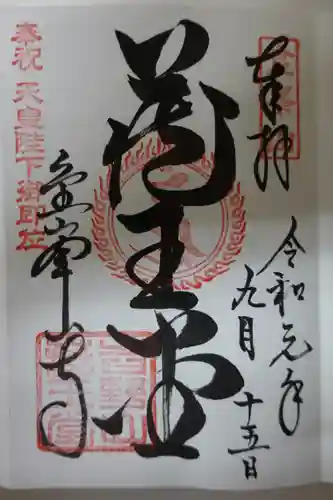 奉拝
令和元年
九月
十五日
蔵王堂
金峯山寺
奉祝 天皇陛下御即位